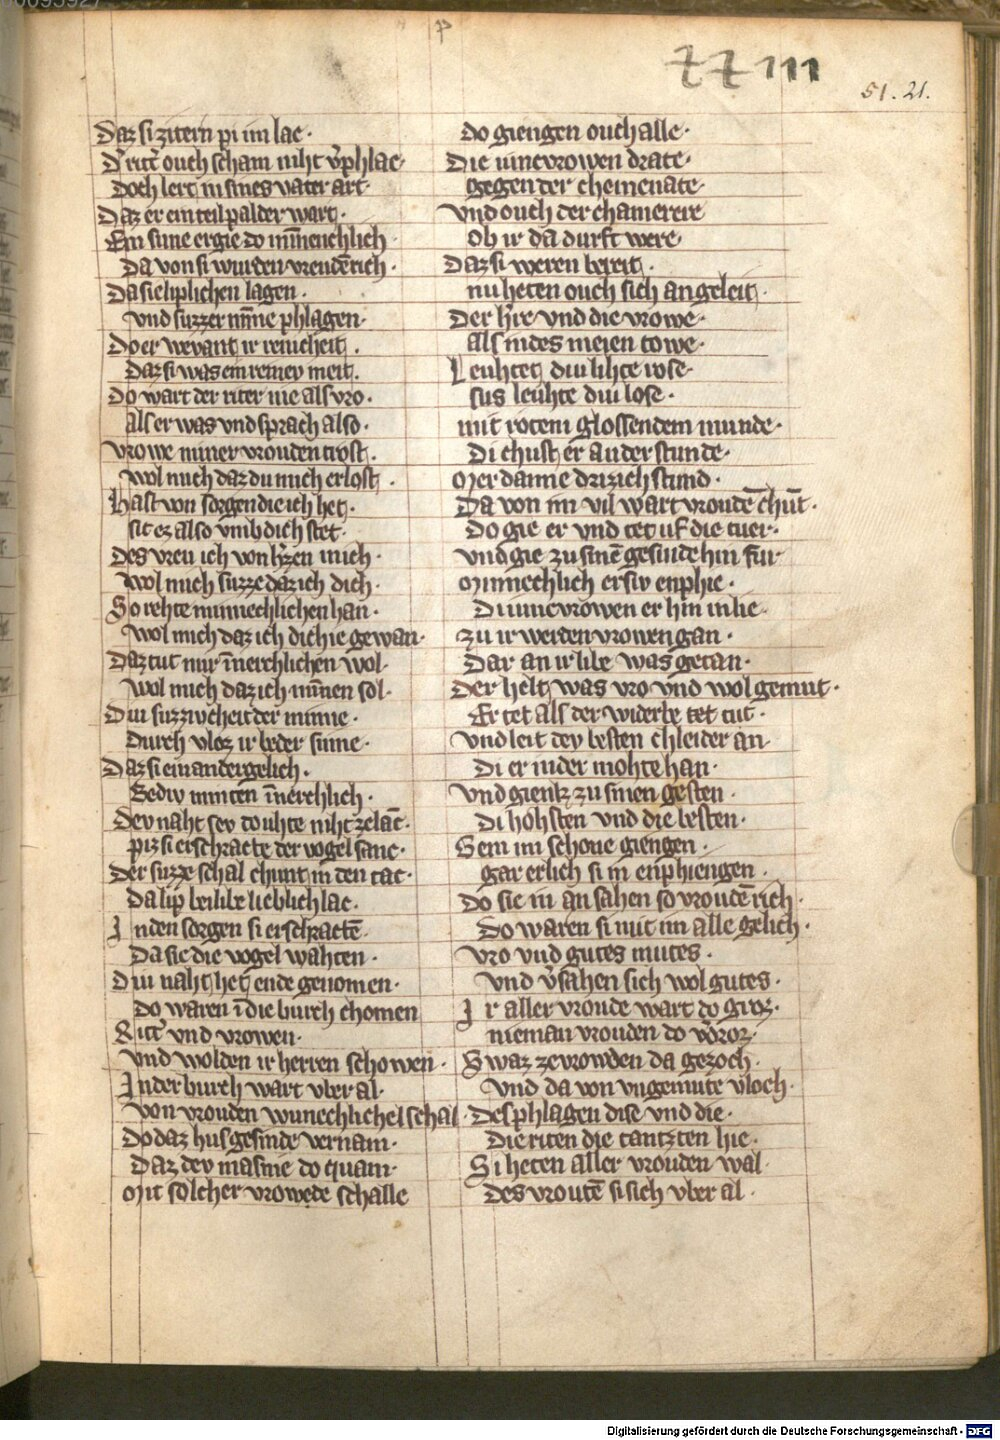 77 111
51. 21.
Daz si zitern pi im lac·
Dˢ ritˢ ouch scham niht vˢphlac·
Doch lert in sines vater art·
Daz er ein teil palder wart·
Ein sune ergie do mīnenchlich
Da von si wurden vreudērich·
Da sie liplichen lagen·
vnd suzzer mīne phlagen·
Do er bevant ir reincheit·
Daz si was ein reinev meit·
Do wart der riter nie als vro·
als er was vnd sprach also·
vrowe miner vrouden trost·
wol mich daz du mich erlost·
Hast von sorgen die ich het·
sit ez also vmb dich stet·
Des vreu ich von hˢzen mich·
wol mich suzze daz ich dich·
So rehte minnechlichen han·
wol mich daz ich dich ie gewan·
Daz tut mir īnerchlichen wol·
wol mich daz ich mīnen sol·
Diu suzzircheit der minne·
Durch vloz ir beder sinne·
Daz si ein ander gelich·
Bediv minten īnerchlich·
Dev naht sev douhte niht ze lāc·
piz si erschracte der vogel sanc·
Der suzze schal chunt in den tac·
Da lip bei libe lieblich lac·
In den sorgen si erschractē
Da sie die vogel wahten·
Diu naht het ende genomen·
Do waren ī die burch chomen
Ritˢ vnd vrowen·
vnd wolden ir herren schowen·
In der burch wart vber al·
von vrouden wunechlichel schal·
Do daz husgesinde vernam·
Daz dev masnie do quam·
Mit solcher vrowede schalle
do giengen ouch alle·
Die iuncvrowen drate·
gegen der chemenate·
vnd ouch der chamerere
Ob ir da durft were·
Daz si weren bereit·
nu heten ouch sich an geleit·
Der hˢre vnd die vrowe·
als in des meien towe·
Leuhtet diu lihte rose·
sus leuhte diu lose·
mit rotem glossendem munde·
Di chust er an der stunde·
Mer danne drizich stund·
Da von im vil wart vroudē chūt·
do gie er vnd tet uf die tuer·
vnd gie zu sinē gesinde hin fur·
Minnechlich er siv enphie·
Di iuncvrowen er hin in lie·
zu ir werden vrowen gan·
Dar an ir libe was getan·
Der helt was vro vnd wol gemut·
Er tet als der widerbe tet tut·
vnd leit dev besten chleider an·
Di er inder mohte han·
vnd gienk zu sinen gesten·
Di hohsten vnd die besten·
Gein im schone giengen·
gar erlich si in enphiengen·
do sie in an sahen so vroudē rich·
Do waren si mit im alle gelich·
vro vnd gutes mutes·
vnd vˢsahen sich wol gutes·
Ir aller vroude wart do groz·
nieman vrouden do vˢdroz·
Swaz ze vrowden da gezoch·
vnd da von vngemute vloch·
Des phlagen dise vnd die·
Die riten die tantzten hie·
Si heten aller vrouden wal·
des vroutē si sich vber al·
Digitalisierung gefördert durch die Deutsche Forschungsgemeinschaft - DFG